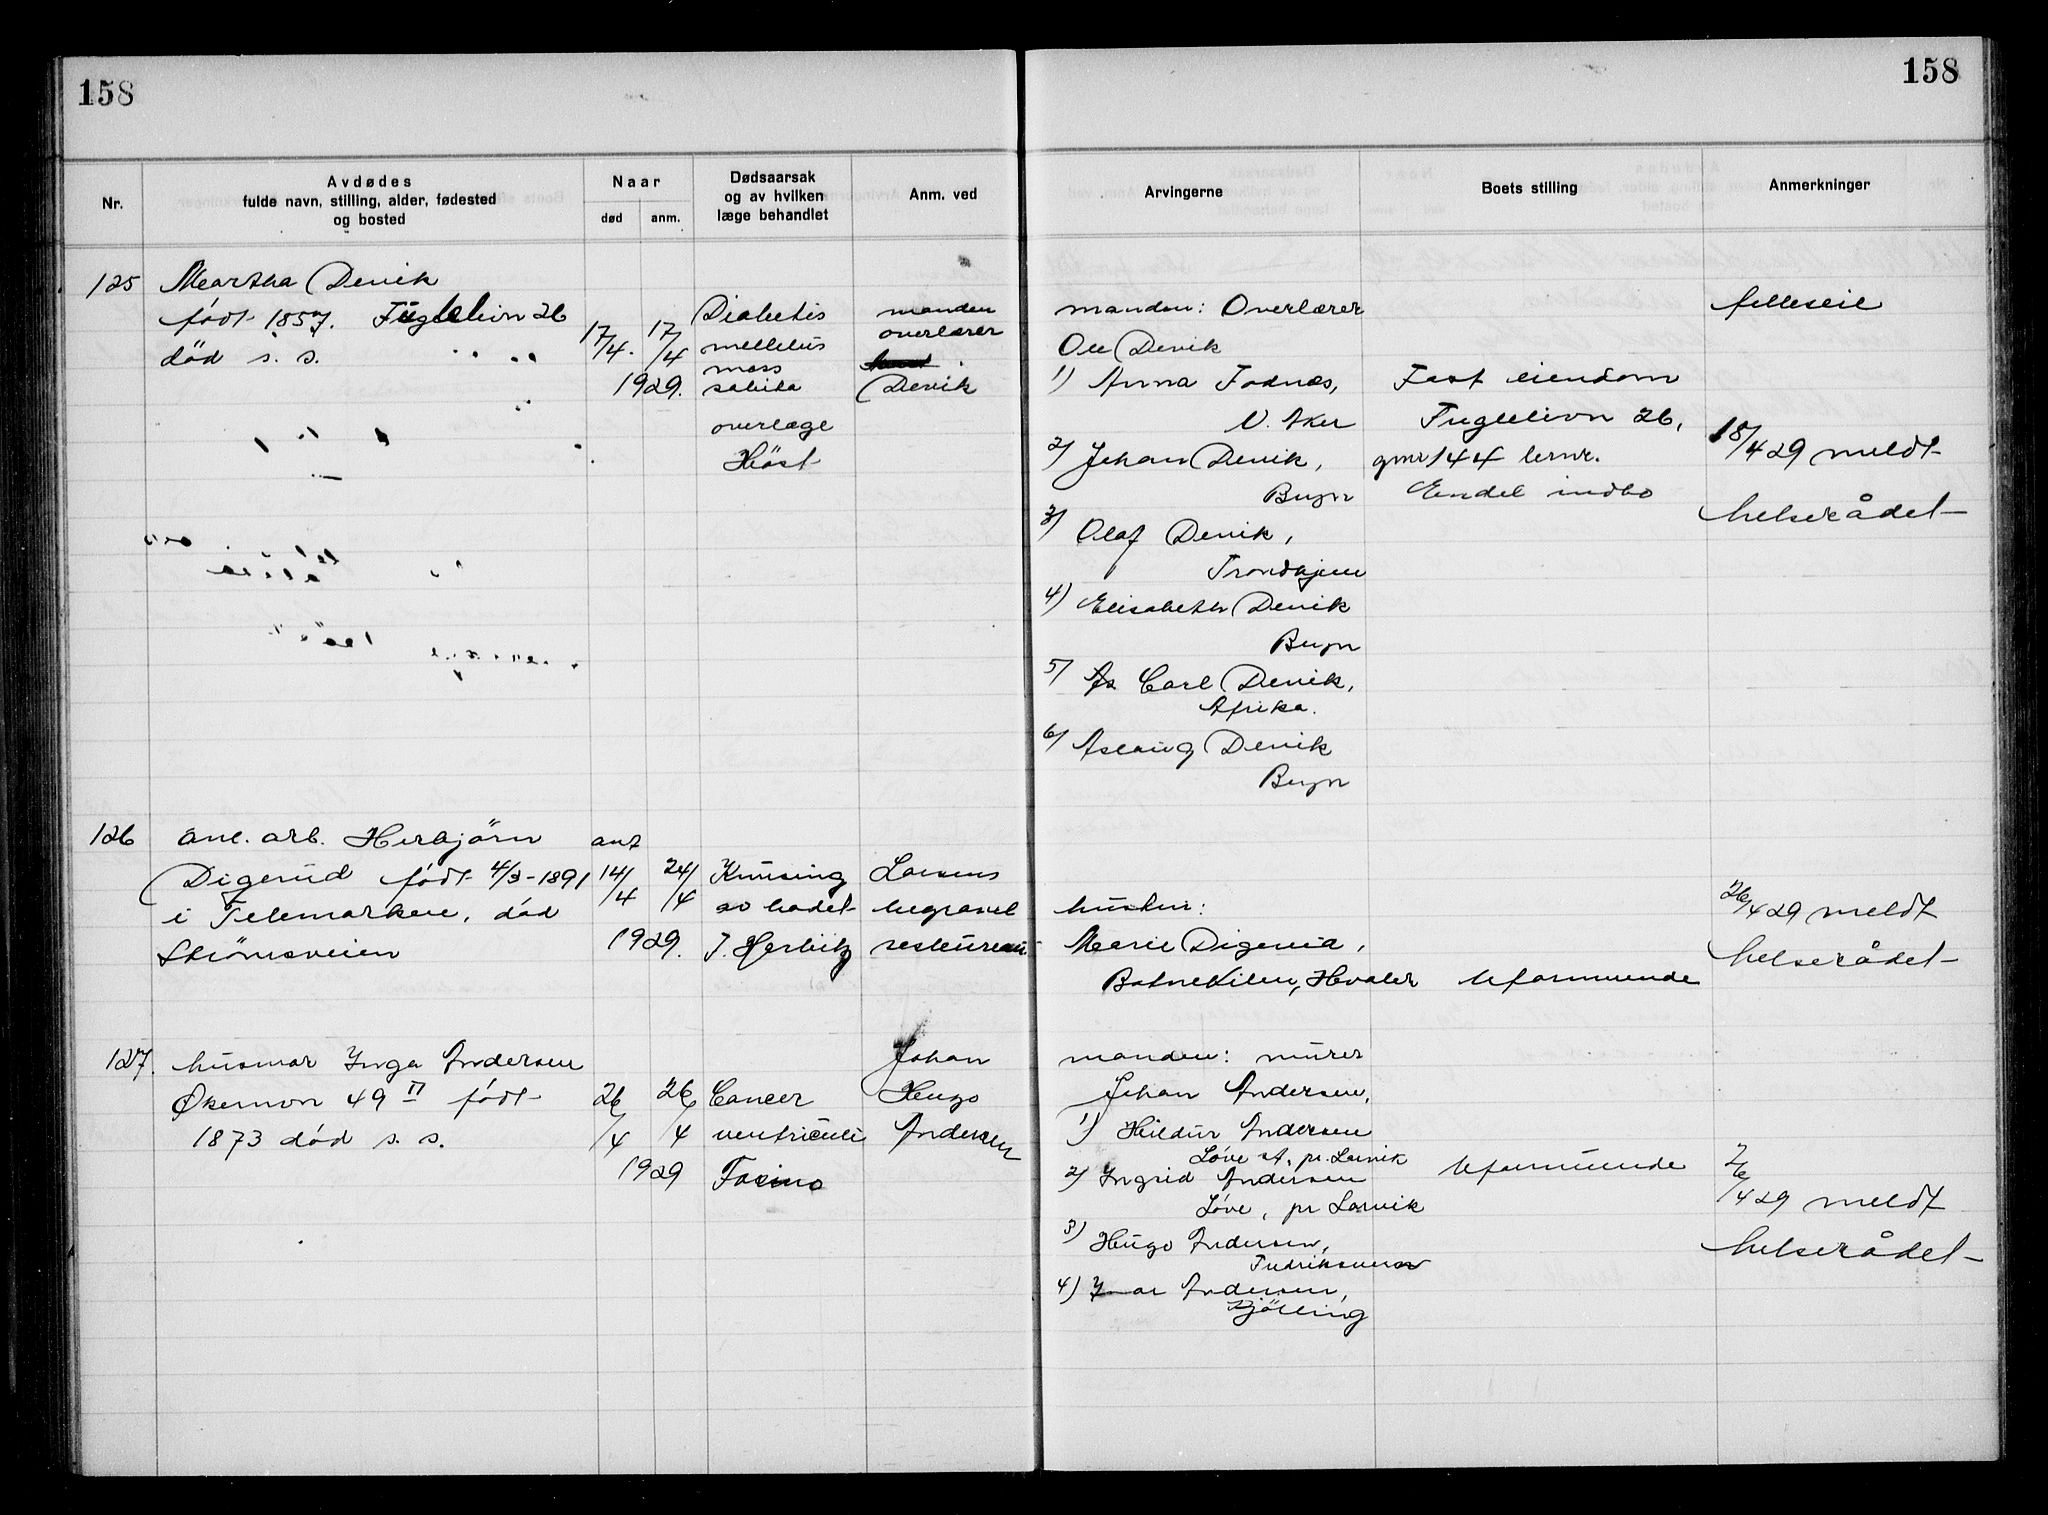 158
158
Nr.
Avdødes
fulde navn, stilling, alder, fødested
og bosted
Naar
død
anm.
Dødsaarsak
og av hvilken
læge behandlet
Anm. ved
Arvingerne
Boets stilling
Anmerkninger
125
Martha Devik
født 1857. Fuglelivn 26
död s. s.
17/4.
17/4
1929.
Diabetis
mellelus
mors
subita
overlæge
Höst
manden
overlærer
Devik
manden: Overlærer
Ole Devik
1) Anna Fodnæs,
V. Aker
2) Johan Devik,
Byn
3) Olaf Devik,
Trondhjem
4) Elisabeth Devik
Byn
5) Carl Devik,
Afrika.
6) Aslaug Devik
Byn
Fast eiendom
Fuglelivn 26,
gnr 144 brnr.
Endel indbo
felleseie
18/4 29 meldt
helserådet
126
anl. arb. Herbjörn
Digerud født 4/3-1891
i Telemarken, död
Strömsveien
ant
14/4
24/4
1929.
Knusing
av hodet
J. Herbitz
Larsens
begravel
sesbureau
hustru:
Marie Digerud,
Botnekilen, Hvaler
Uformuende
26/4 29 meldt
helserådet
127.
husmor Inga Andersen
Økernvn 49 II født
1873 död s. s.
26/4
26/4
1929
Cancer
ventriculi
Johan
Hugo
Andersen
manden: murer
Johan Andersen,
1) Hildur Andersen
Løve st. pr. Larvik
2) Ingrid Andersen
Løve, pr Larvik
3) Hugo Andersen,
Fredriksværn
4) Ivar Andersen,
Kjölling
Uformuende
26/4 29 meldt
helserådet